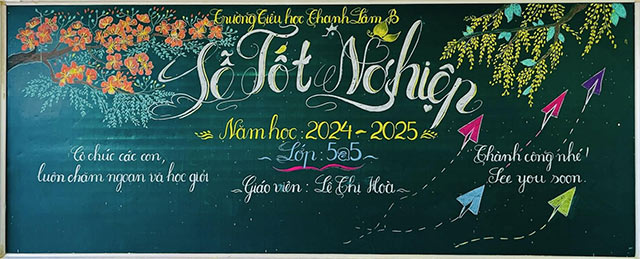 Trường Tiểu học Thạnh Lâm B
Lễ Tốt Nghiệp
Năm học: 2024 - 2025
Lớp: 5@5
Giáo viên: Lê Thị Hoà
Cô chúc các con,
luôn chăm ngoan và học giỏi
Thành công nhé!
See you soon.